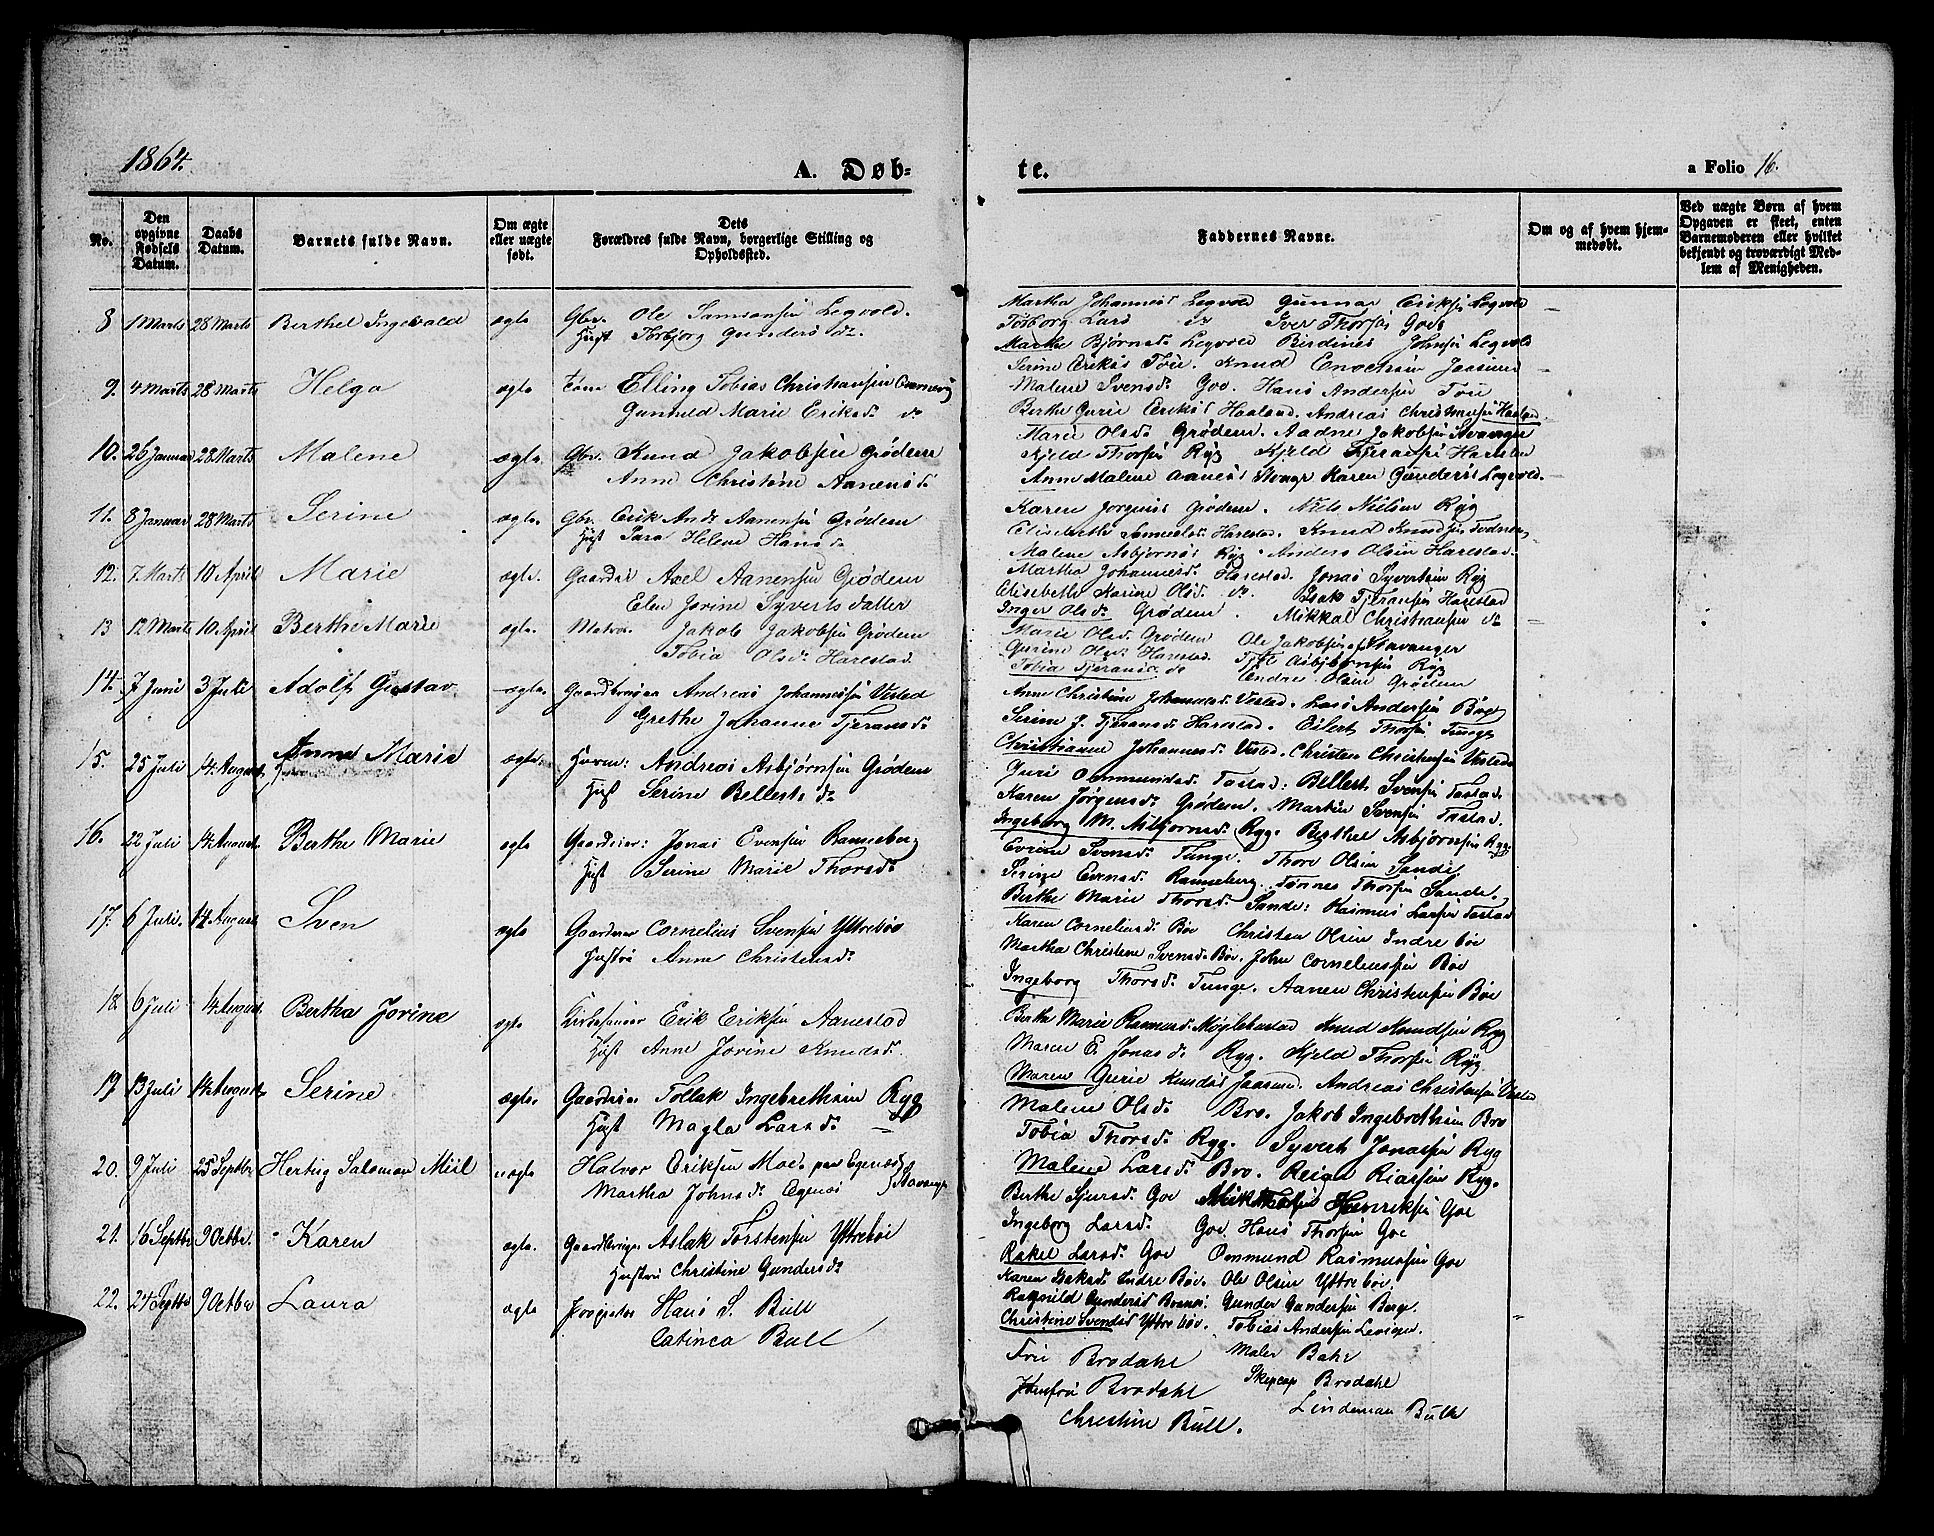 1864.
A. Døb-
te.
a Folio 16.
No.
Den opgivne Fødsels Datum.
Daabs Datum.
Barnets fulde Navn.
Om ægte eller uægte født.
Dets Forældres fulde Navn, borgerlige Stilling og Opholdssted.
Faddernes Navne.
Om og af hvem hjemmedøbt.
Ved uægte Børn af hvem Opgaven er skeet, enten Barnemoderen eller hvilket bekjendt og troværdigt Medlem af Menigheden.
8 1 Marts 28 Marts Berthel Ingevald ægte Gbr. Ole Samsonsen Legvold.
Hust Torbjorg Gundersd.
Martha Johannesd Legvold Gunnar Eriksen Legvold
Torborg Lars Iver Thorsen Goe
Marthe Bjørnsd. Legvold Johnsen Legvold
9. 4 Marts 28 Marts Helga ægte Elling Tobias Christiansen
Gunnild Marie Eriksd. do
Serine Eriksd Tøie. Knud Enochsen
Malene Svensd. Goe. Hans Andersen Tøie
Berthe Gurie Eriksd Haaland. Andreas Christensen Haaland
10. 26 Januar 28 Marts Malene ægte. Gbr. Knud Jakobsen Grødem
Anne Christine Aanensd.
Marie Olsd. Grødem. Aadne Jakobsen Stavanger
Kjeld Thorsen Ryg Kjeld Tjeransen Harestad
Anne Malene Aanesd Karen Gundersd Legvold.
11. 8 Januar 28 Marts Serine ægte. Gbr. Erik And. Aanensen Grødem
Hust Sara Helene Hansd.
Karen Jorgensd Grødem. Niels Nielsen Ryg
Elisabeth Samuelsd. Harestad. Knud Knudsen Todnem
Malene Asbjørnsd Ryg Anders Olsen Harestad.
12. 7 Marts 10 April Marie ægte. Gaardm Axel Aanensen Grødem
Elen Jorine Syverts datter
Martha Johannesd. Harestad. Jonas Syvertsen Ryg
Elisabeth Karine Olsd. do. Isak Tjeransen Harestad
Inger Olsd. Grødem. Mikkal Christiansen do
13 12 Marts 10 April Berthe Marie ægte. Matros Jakob Jakobsen Grødem
Tobia Olsd. Harestad
Marie Olsd. Grødem Ole Jakobsen Stavanger
Gurine Olsd. Harestad. Asbjørnsen Ryg
Tobia Tjeransd. do Endre Olsen Grødem
14. 7 Juni 3 Juli Adolf Gustav ægte. Gaardbruger Andreas Johannessen Vestad
Grethe Johanne Tjeransd.
Anne Christine Johannesd. Vestad. Lars Andersen Bøe
Serine J. Tjeransd Harestad. Eilert Thorsen Tunge
Christianne Johannesd. Vestad. Christen Christensen Vestad
15. 25 Juli 14. August Anne Marie ægte. Andreas Asbjørnsen Grødem
Hust Serine Bellests do
Guri Ommundsd. Tastad: Bellest Svensen Tastad
Karen Jörgensd. Grødem. Martin Svensen Tastad.
Ingeborg M. Asbjørnsd. Ryg. Berthel Asbjørnsen Ryg.
16. 22 Juli 14. August Berthe Marie ægte Gaardeier: Jonas Evensen Ranneberg
Hust Serine Marie Thorsd.
Evine Svensd. Tunge. Thore Olsen Sande
Serine Evensd. Ranneberg. Tønnes Thorsen Sande.
Berthe Marie Thorsd. Sande: Rasmus Larsen Tastad
17. 6 Juli. 14 August Sven ægte Gaardeier Cornelius Svensen Yttrebøe
Hustru Anne Christensd.
Karen Corneliusd. Bøe Christen Olsen Indre bøe
Martha Christine Svensd. Bøe. John Corneliussen Bøe
Ingeborg Thorsd. Tunge. Aanen Christensen Bøe
18. 6 Juli 14 August Bertha Jorine ægte Kirkesanger Erik Eriksen Aanestad
Hust Anne Jorine Knudsd.
Berthe Marie Rasmusd. Møglebustad Knud Knudsen Ryg
Maren E. Jonasd. Ryg. Kjeld Thorsen Ryg
Maren Gurie Knudsd Jaasund. Andreas Christensen Vestad
19 13 Juli 14. August Serine ægte. Gaardeier Tollak Ingebrethsen Ryg
Hust Magla Larsd.
Malene Olsd. Bro. Jakob Ingebrethsen Bro
Tobia Thorsd. Ryg. Syvert Jonassen Ryg
Malene Larsd. Bro. Reier Riarsen Ryg.
20. 9 Juli 25 Septbr Hertug Salomon Miil uægte Halvor Eriksen Moe. paa Egenæs
Martha Johnsd. Egenæs } Stavanger
Berthe Sjursd. Goe Henriksen Goe
Ingeborg Larsd. Goe Hans Thorsen Goe
Rakel Larsd. Goe Ommund Rasmussen Goe
21. 16 Septbr 9 Octbr. Karen ægte. Gaardbruger Aslak Torstensen Yttrebøe
Hustru Christine Gundersd.
Karen Isaksd Indre Bøe. Ole Olsen Yttre bøe.
Ragnild Gundersd Gunder Gundersen Berge.
Christine Svendsd Yttre bøe. Tobias Andersen
22. 24 Septbr 9 Octbr Laura ægte Hans S. Bull
Catinca Bull
Frue Brodahl Maler Bahr
Jomfru Brodahl Brodahl
Christine Bull. Lindeman Bull